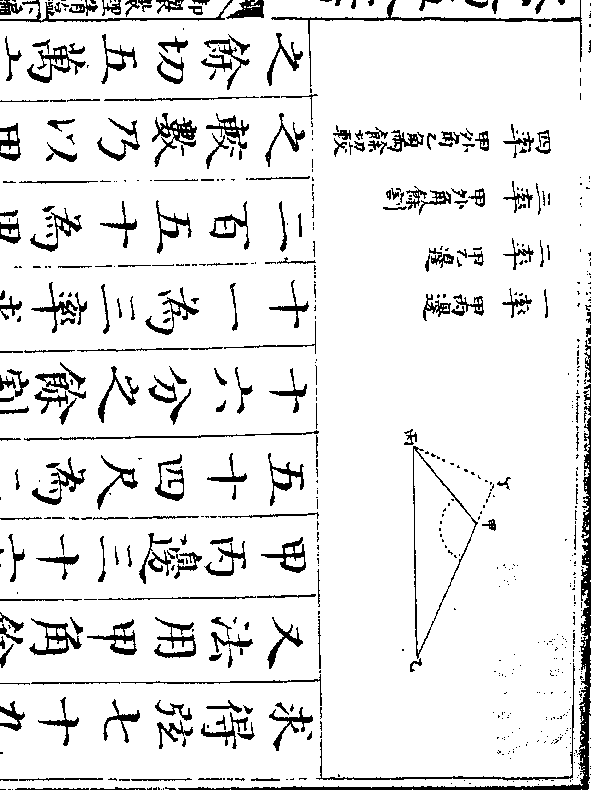 乙
甲
丁
丙
一率 甲丙邊
二率 甲乙邊
三率 甲外角餘割
四率 甲外角乙角兩餘切較
求得弦七十九
又法用甲角餘
甲丙邊三十
五十四尺為
十六分之餘割
十一為三率求
二百五十為甲
之較數乃以甲
之餘切五萬